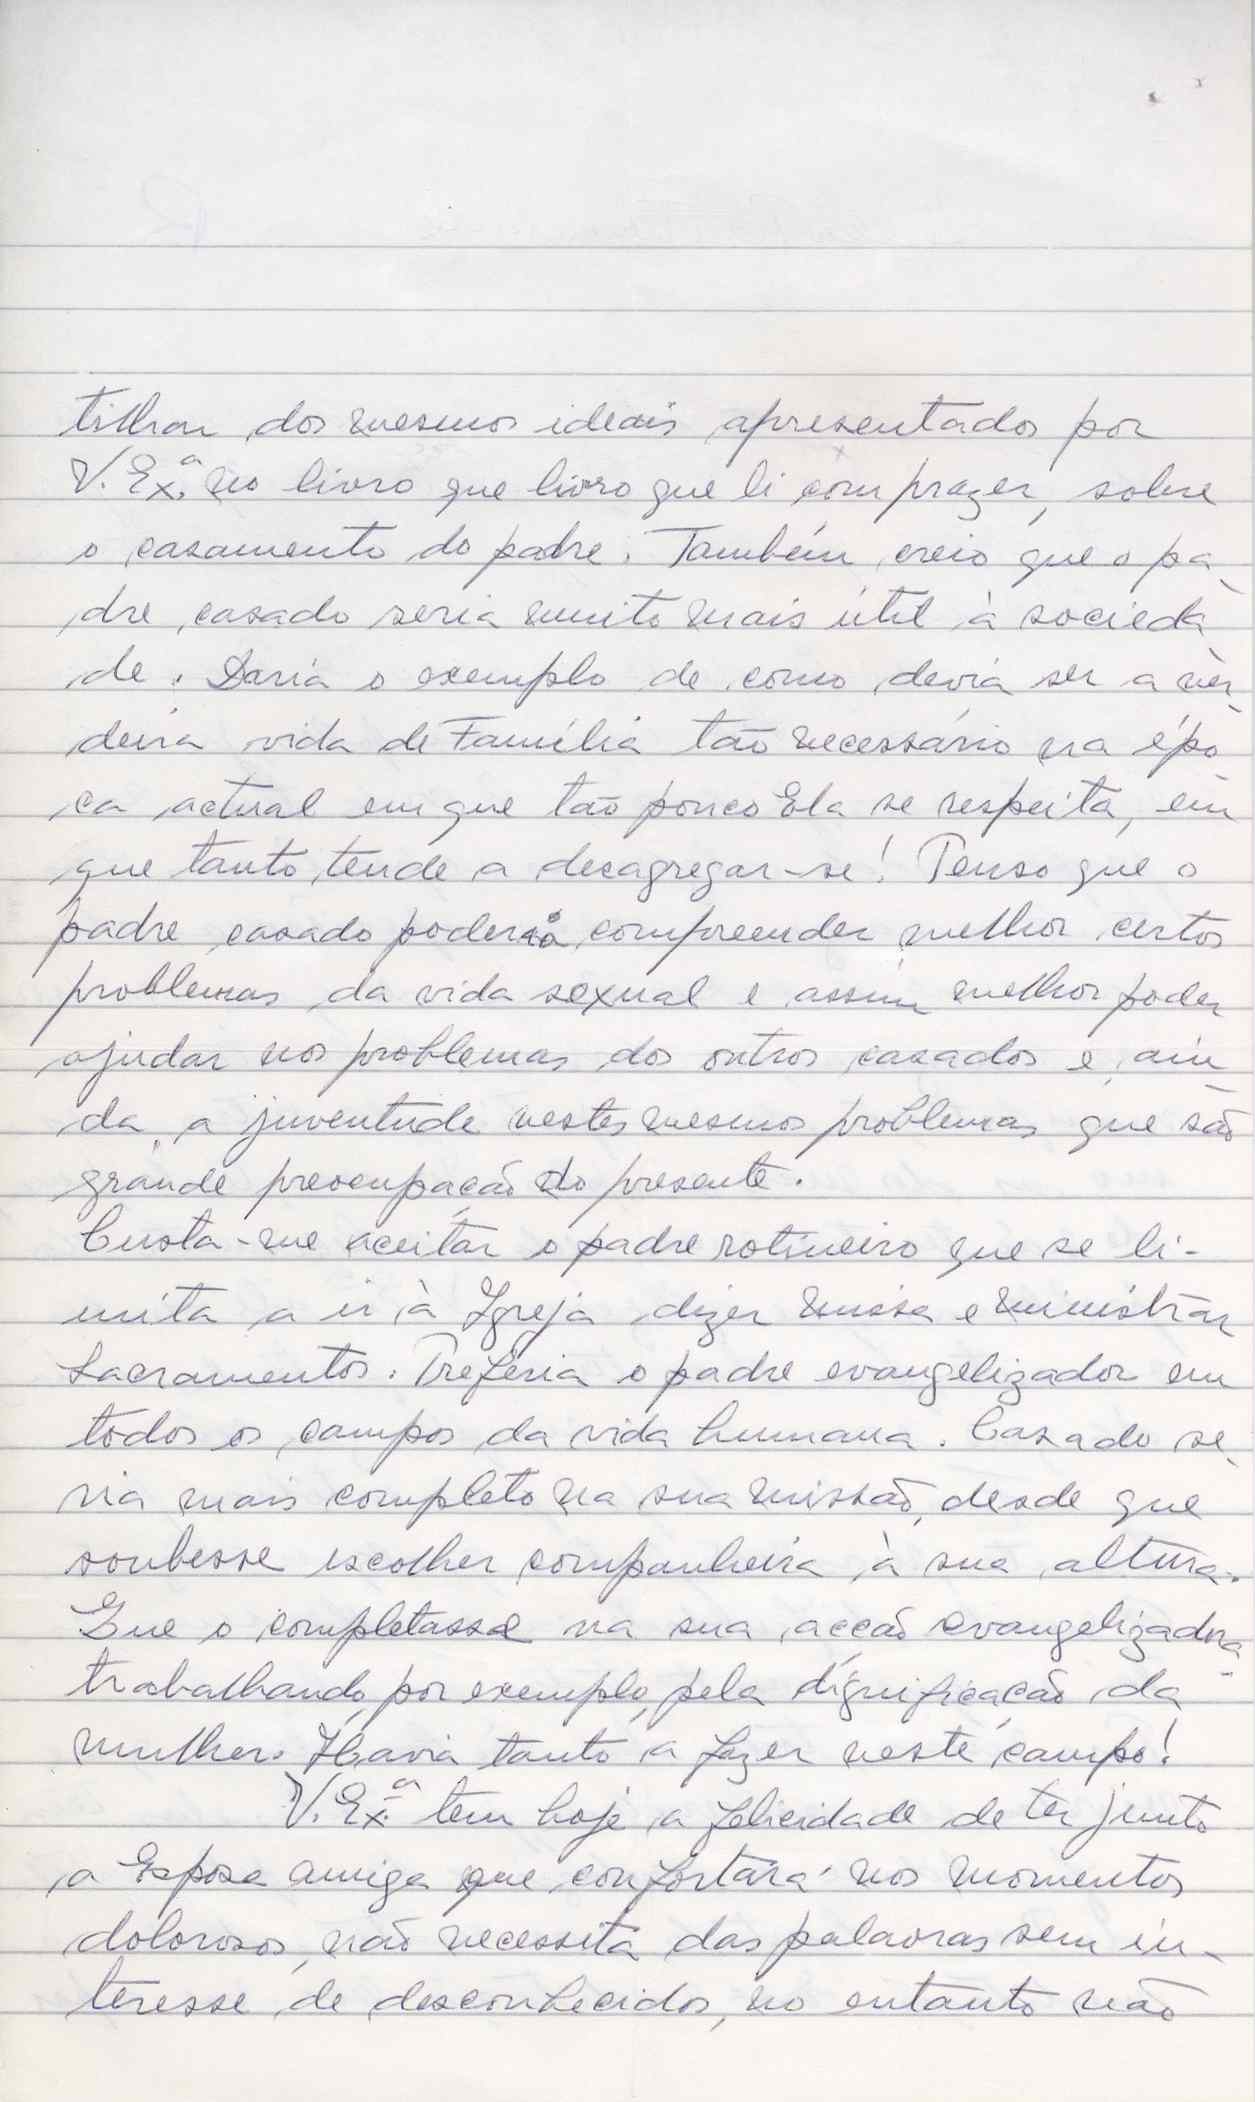 tilhar dos mesmos ideais apresentados por
V. Exª. no livro que livro que li com prazer, sobre
o casamento do padre. Também creio que o pa
dre casado seria muito mais útil à socieda
de. Daria o exemplo de como devia ser a ver
deira vida de Família tão necessário na épo
ca actual em que tão pouco Ela se respeita, em
que tanto tende a desagregar-se! Penso que o
padre casado poderia compreender melhor certos
problemas da vida sexual e assim melhor poder
ajudar nos problemas dos outros casados e, ain
da, a juventude nestes mesmos problemas que são
grande preocupação do presente.
Custa-me aceitar o padre rotineiro que se li-
mita a ir à Igreja dizer missa e ministrar
Sacramentos. Preferia o padre evangelizador em
todos os campos da vida humana. Casado se
ria mais completo na sua missão, desde que
soubesse escolher companheira à sua altura.
Que o completasse na sua acção evangelizadora
trabalhando, por exemplo, pela dignificação da
mulher. Havia tanto a fazer neste campo!
V. Exª. tem hoje a felicidade de ter junto
a Esposa amiga que confortará nos momentos
dolorosos, não necessita das palavras sem in-
teresse de desconhecidos, no entanto não